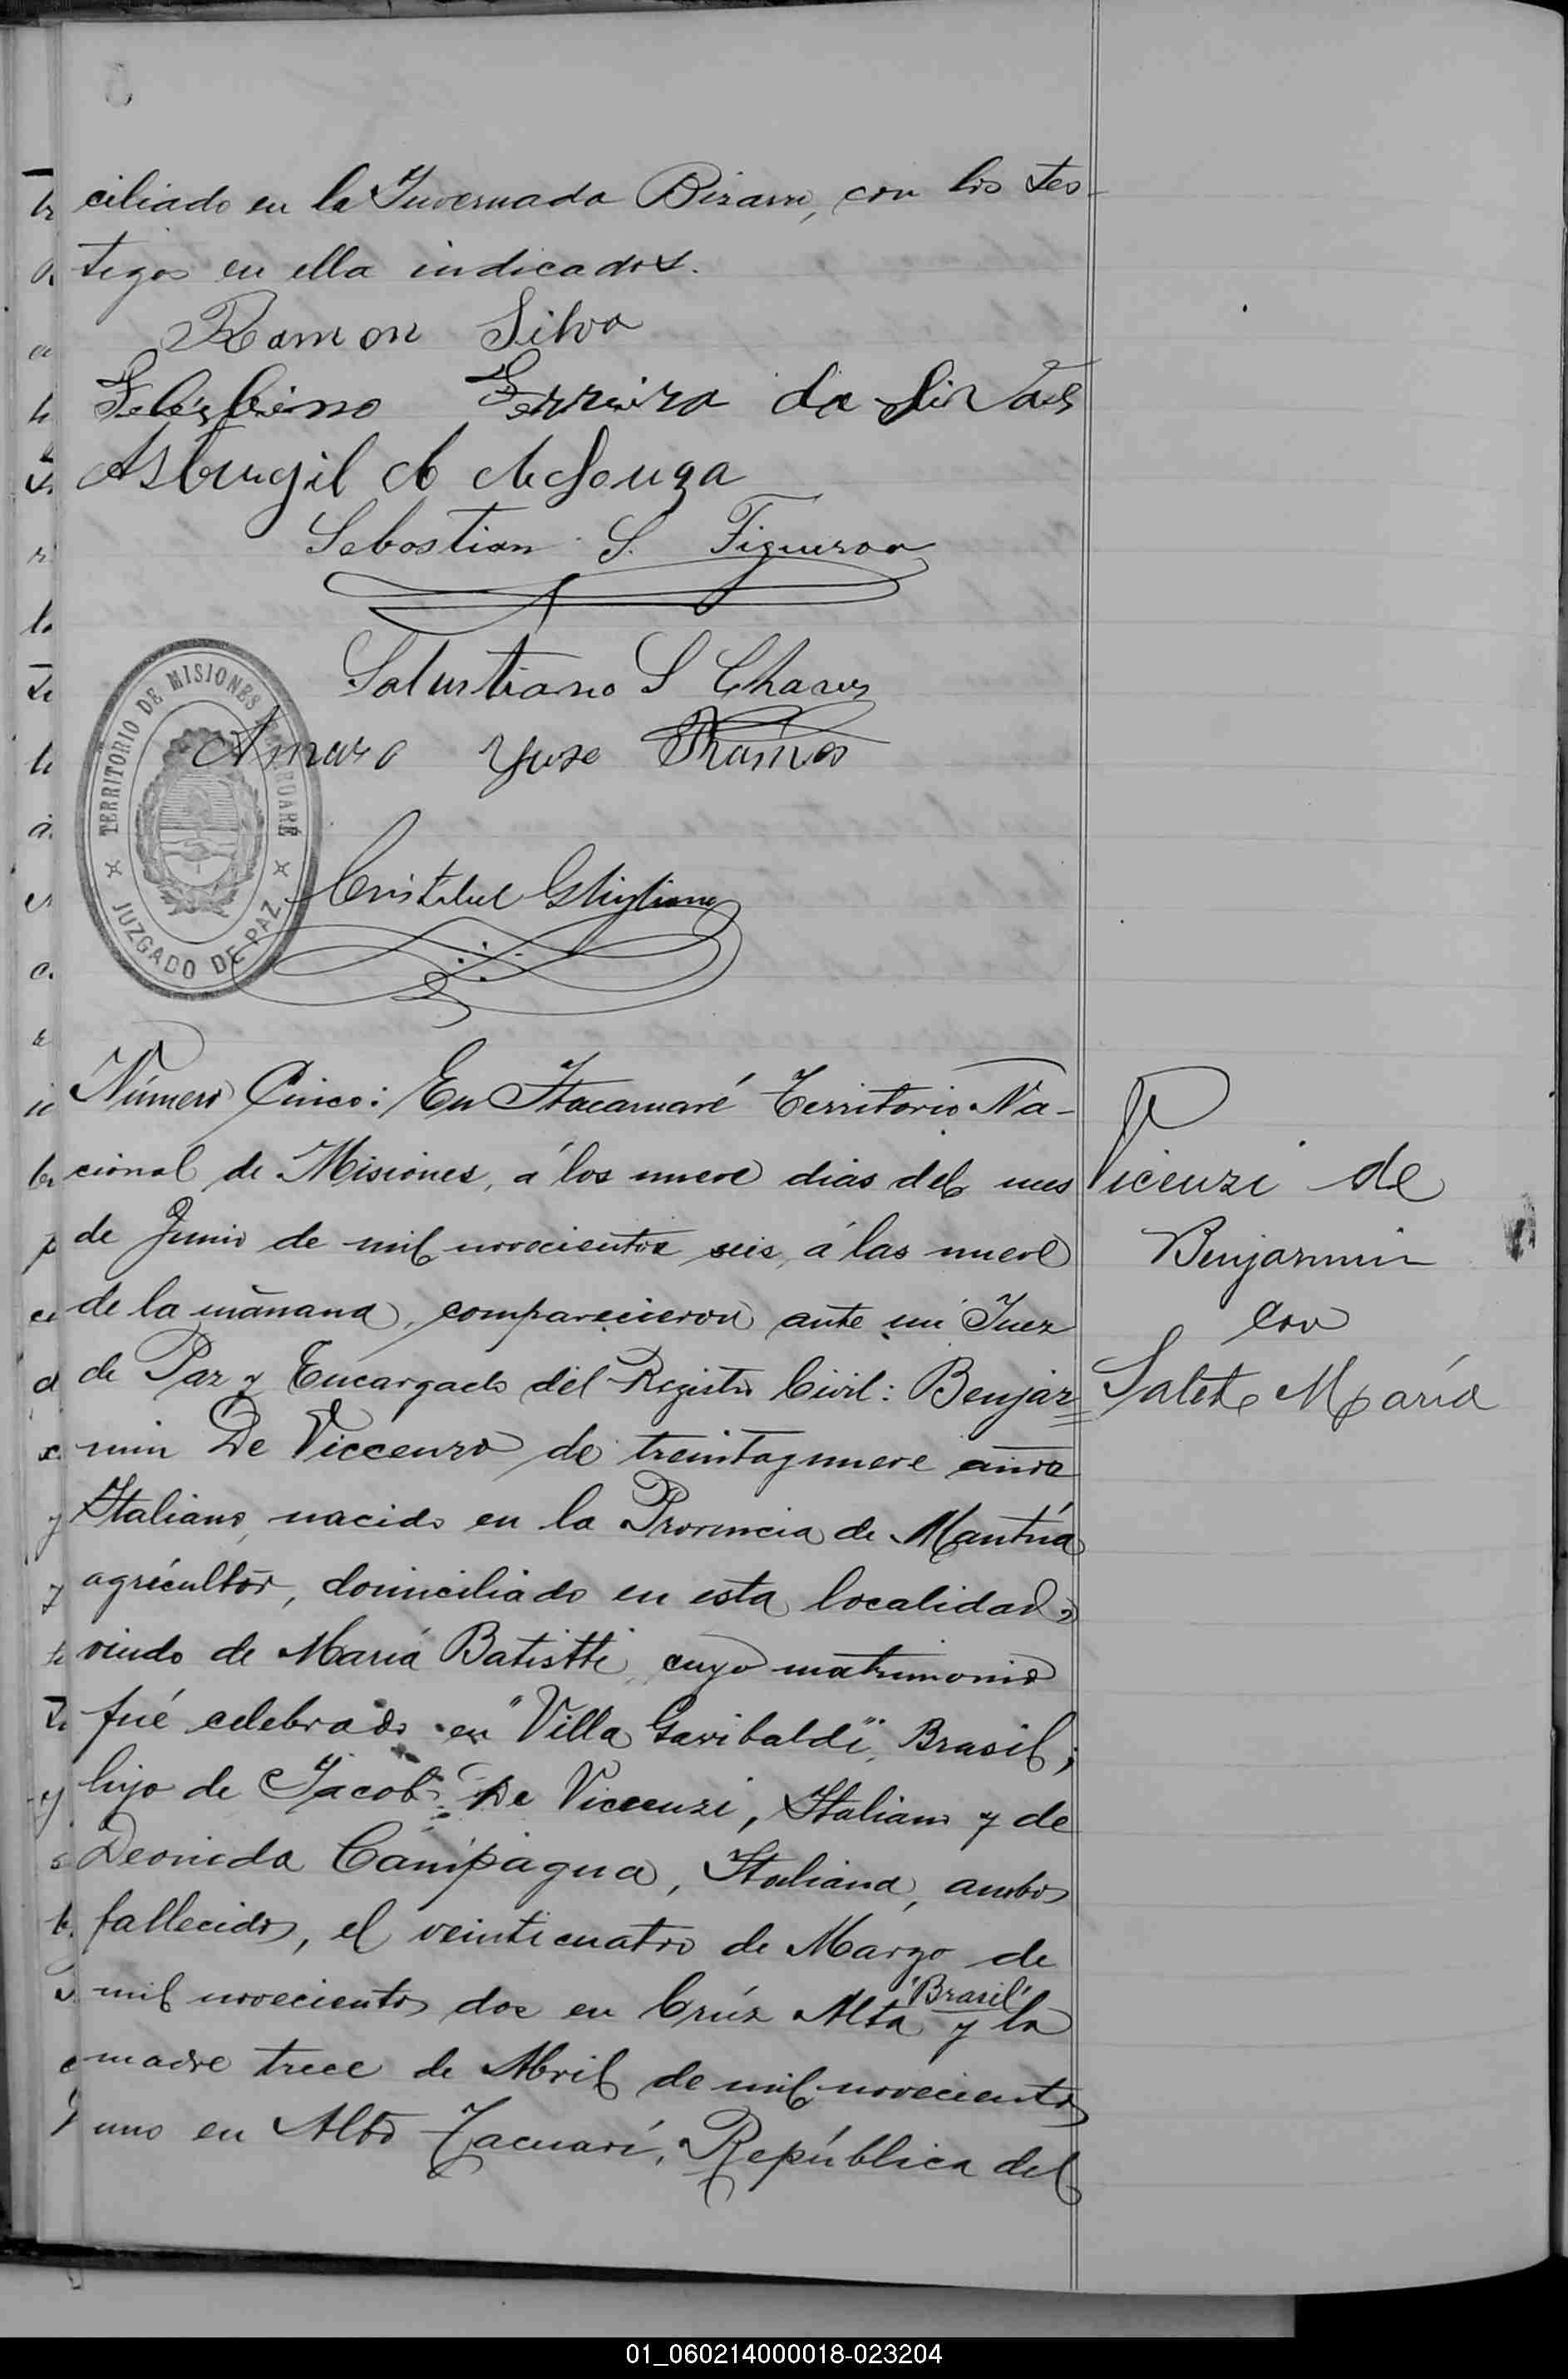 ciliado en la Invernada Bizarro, con los tes-
tigos en ella indicados.
Ramon Silva
Ferreira da
de Souza
Sebastian S. Figueroa
Salustiano S Chaves
Amaro Jose Ramos
TERRITORIO DE MISIONES
JUZGADO DE PAZ
Cristobal
Número Cinco: En Itacaruaré Territorio Na-
cional de Misiones, á los nueve dias del mes
de Junio de mil novecientos seis, á las nueve
de la mañana, comparecieron ante mi Juez
de Paz y Encargado del Registro Civil: Benjar=
min De Viccenzo de treintaynueve años
Italiano, nacido en la Provincia de Mantúa
agricultor, domiciliado en esta localidad,
viudo de María Batistti, cuyo matrimonio
fué celebrado en "Villa Garibaldi", Brasil;
hijo de Jacob De Viccenzi, Italiano y de
Deonida Campagna, Italiana, ambos
fallecidos, el veinticuatro de Marzo de
mil novecientos dos en Crúz Alta "Brasil" y la
madre trece de Abril de mil novecientos
uno en Alto Jacuarí, República del
Vicenzi de
Benjarmin
con
Salete María
01_060214000018-023204